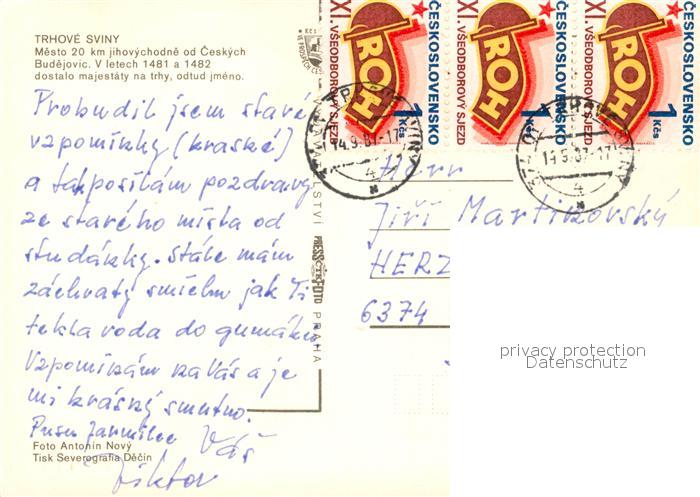 TRHOVÉ SVINY
Město 20 km jihovýchodně od Českých
Budějovic. V letech 1481 a 1482
dostalo majestáty na trhy, odtud jméno.
Probudil jsem staré
vzpomínky (kraské)
a tak posílám pozdravy
ze starého místa od
studánky. Stále mám
záchvaty smíchu jak Ti
tekla voda do gumáků
Vzpomínám na Vás a je
mi krásný smutno.
Pusu Jarmilce Váš
Viktor
Foto Antonín Nový
Tisk Severografia Děčín
PRESSFOTO PRAHA
XI. VŠEODBOROVÝ SJEZD
ROH
ČESKOSLOVENSKO
1 Kčs
XI. VŠEODBOROVÝ SJEZD
ROH
ČESKOSLOVENSKO
1 Kčs
XI. VŠEODBOROVÝ SJEZD
ROH
ČESKOSLOVENSKO
1 Kčs
14.9.87-17
4
4
Herr
Jiří Martinovský
HERZ
6374
privacy protection
Datenschutz